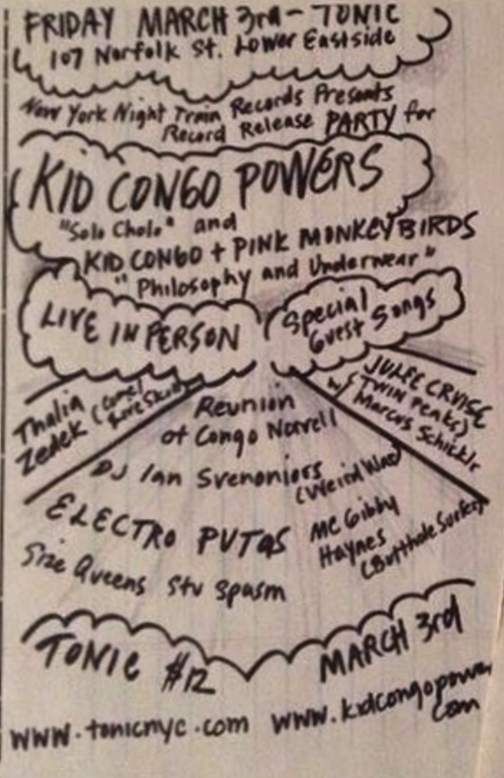 FRIDAY MARCH 3rd - TONIC
107 Norfolk St. Lower Eastside
New York Night Train Records Presents
Record Release PARTY for
KID CONGO POWERS
"Solo Cholo" and
KID CONGO + PINK MONKEYBIRDS
"Philosophy and Underwear"
LIVE IN PERSON
Special
Guest Songs
Thalia
Zedek (Come/
JULEE CRUISE
(TWIN PEAKS)
w/ Marcus Schickle
Reunion
of Congo Norvell
DJ Ian Svenonious
(Weird War)
ELECTRO PUTAS
MC Gibby
Haynes
(Butthole Surfers)
Size Queens Stu Spasm
TONIC $12
MARCH 3rd
www.tonicnyc.com www.kidcongopower
com